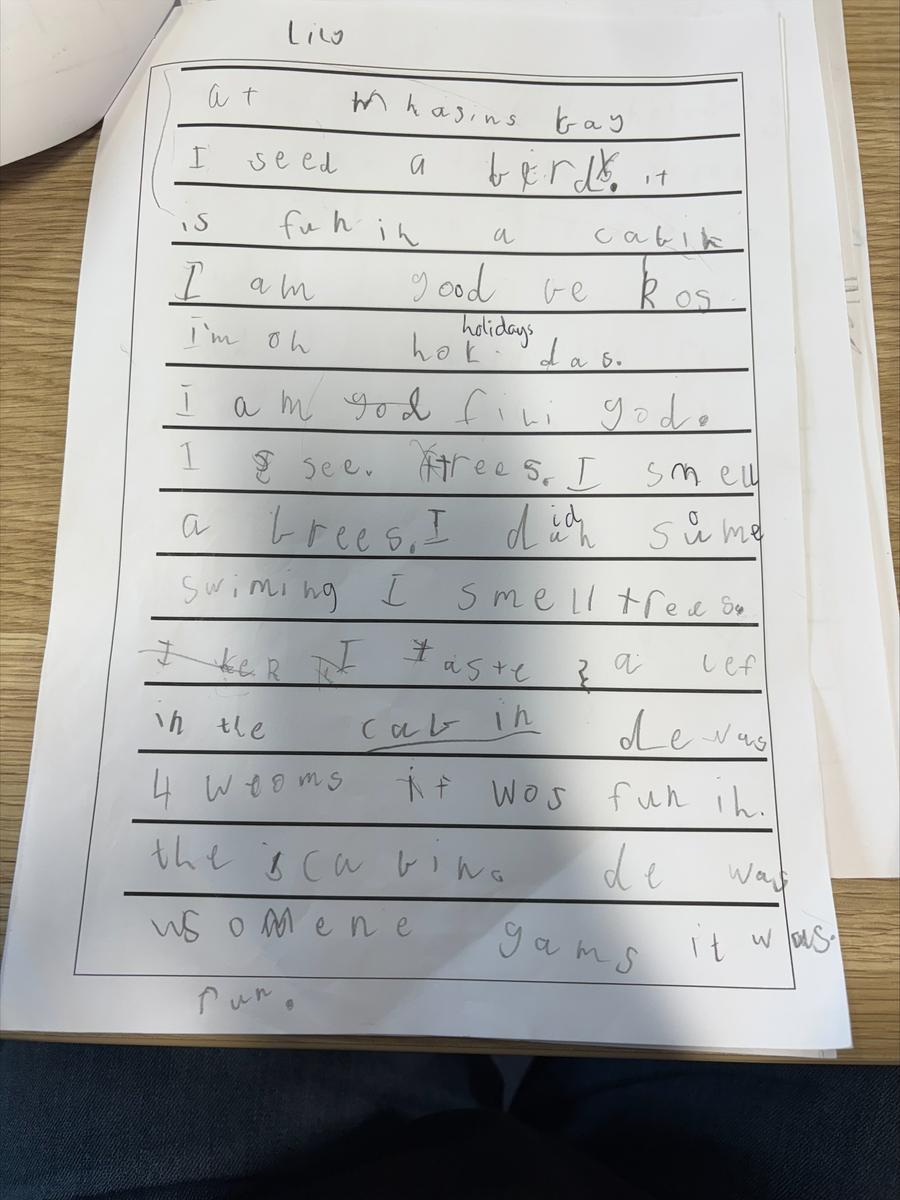 Lilo
at Mhasins bay
I seed a berd. it
is fun in a cabin
I am good be kos
I'm on holidays hol. das.
I am god fili god.
I see. trees. I smell
a trees. I did some
swiming I smell trees.
I I taste a lef
in the cabin de was
4 weoms it wos fun in.
the cabin. de was
somene gams it was.
fun.